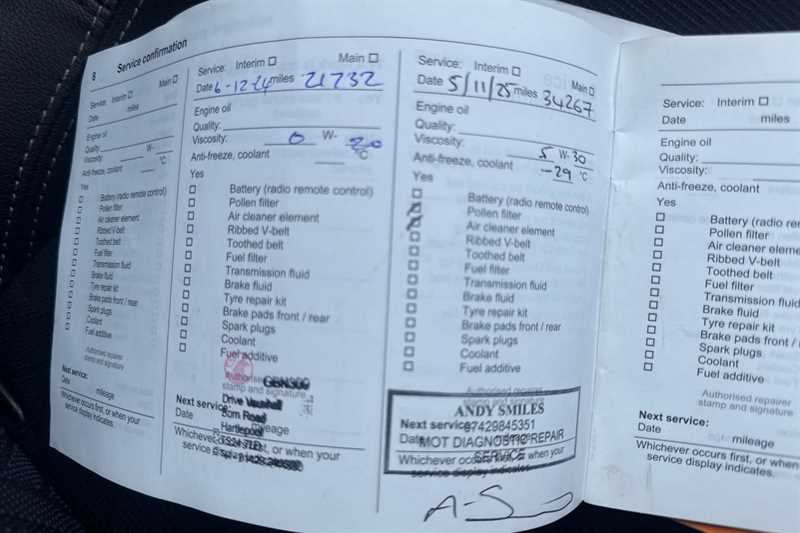 8 Service confirmation
Service: Interim Main
Date miles
Engine oil
Quality:
Viscosity: W-
Anti-freeze, coolant °C
Yes
Battery (radio remote control)
Pollen filter
Air cleaner element
Ribbed V-belt
Toothed belt
Fuel filter
Transmission fluid
Brake fluid
Tyre repair kit
Brake pads front / rear
Spark plugs
Coolant
Fuel additive
Authorised repairer
stamp and signature
Next service:
Date mileage
Whichever occurs first, or when your
service display indicates.
Service: Interim Main
Date 6-12-24 miles 21732
Engine oil
Quality:
Viscosity: 0 W- 20
Anti-freeze, coolant °C
Yes
Battery (radio remote control)
Pollen filter
Air cleaner element
Ribbed V-belt
Toothed belt
Fuel filter
Transmission fluid
Brake fluid
Tyre repair kit
Brake pads front / rear
Spark plugs
Coolant
Fuel additive
Authorised
stamp and signature
Drive Vauxhall
Next service: Burn Road
Date Hartlepool mileage
Whichever occurs first, or when your
service display indicates.
Service: Interim Main
Date 5/11/25 miles 34267
Engine oil
Quality:
Viscosity: 5 W- 30
Anti-freeze, coolant -29 °C
Yes
Battery (radio remote control)
Pollen filter
Air cleaner element
Ribbed V-belt
Toothed belt
Fuel filter
Transmission fluid
Brake fluid
Tyre repair kit
Brake pads front / rear
Spark plugs
Coolant
Fuel additive
Authorised repairer
ANDY SMILES
Next service: 07429845351
Date MOT DIAGNOSTIC REPAIR
SERVICE
Whichever occurs first, or when your
service display indicates.
A-S
Service: Interim
Date miles
Engine oil
Quality:
Viscosity:
Anti-freeze, coolant
Yes
Battery (radio re
Pollen filter
Air cleaner eleme
Ribbed V-belt
Toothed belt
Fuel filter
Transmission fluid
Brake fluid
Tyre repair kit
Brake pads front /
Spark plugs
Coolant
Fuel additive
Authorised repairer
stamp and signature
Next service:
Date mileage
Whichever occurs first, or when
service display indicates.